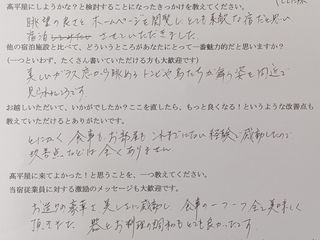 高平星にしようかな？と検討することになったきっかけを教えてください。
眺望の良さとホームページを閲覧しとても素敵な宿だと思い
宿泊 させていただきました。
他の宿泊施設と比べて、どういうところがあなたにとって一番魅力的だと思いますか？
(一つといわず、たくさん書いていただける方も大歓迎です)
美しいガラス窓から眺めるトンビや鳥たちが舞う姿を間近で
見られるところです。
お越しいただいて、いかがでしたか？ここを直したら、もっと良くなる！というような改善点も
教えていただけるとありがたいです。
とにかく食事もお部屋もこれまでにない経験で感動したので
改善点などは全くありません
高平星に来てよかった！と思うことを、一つ教えてください。
当宿従業員に対する激励のメッセージも大歓迎です。
お造りの豪華で美しさに感動し 食事の一つ一つ全て美味しく
頂きました 器とお料理の調和もとても良かったです